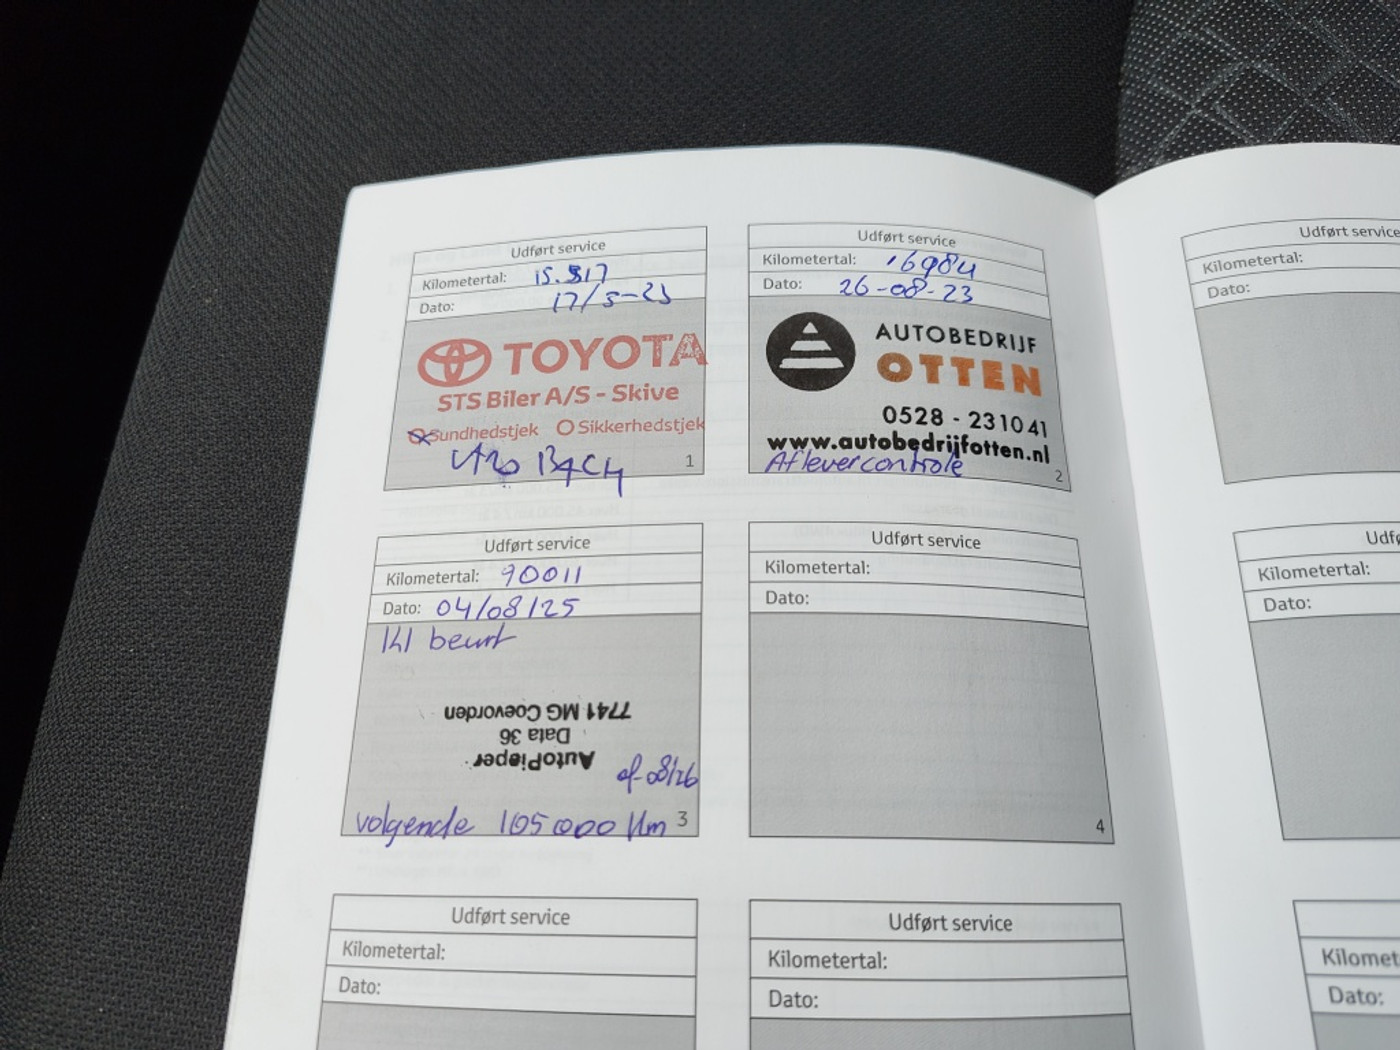 Udført service
Kilometertal: 15.817
Dato: 17/5-23
TOYOTA
STS Biler A/S - Skive
Sundhedstjek Sikkerhedstjek
1
Udført service
Kilometertal: 16984
Dato: 26-08-23
AUTOBEDRIJF
OTTEN
0528 - 231041
www.autobedrijfotten.nl
Aflevercontrole
2
Udført service
Kilometertal:
Dato:
Udført service
Kilometertal: 90011
Dato: 04/08/25
Kl beurt
AutoPieper
Data 36
7741 MG Coevorden
of 08/26
volgende 105000 Km
3
Udført service
Kilometertal:
Dato:
4
Udf
Kilometertal:
Dato:
Udført service
Kilometertal:
Dato:
Udført service
Kilometertal:
Dato:
Kilomet
Dato: